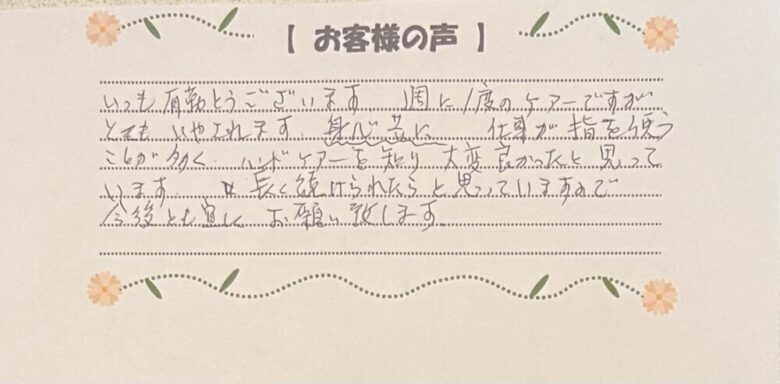 【 お客様の声 】
いつも有難とうございます 1週に1度のケアーですが
とても いやされます. 身心共に 仕事が指を使う
ことが多く. ハンドケアーを知り 大変良かったと思って
います. 長く続けられたらと思っていますので
今後とも宜しく お願い致します.